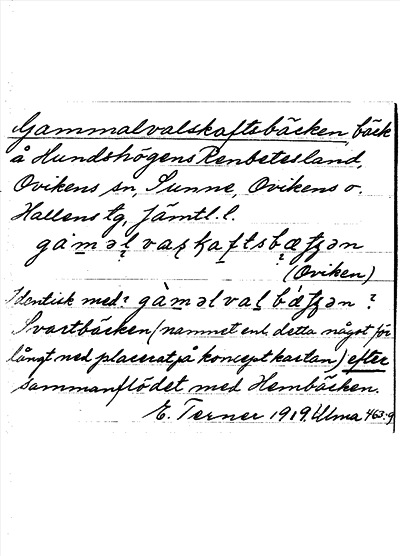 Gammalvalskaftsbäcken, bäck
å Hundshögens Renbetesland,
Ovikens sn, Sunne, Ovikens o.
Hallens tg, Jämtl. l.
(Oviken)
Identisk med?
Svartbäcken (namnet enl. detta något för
långt ned placerat på konceptkartan) efter
sammanflödet med Hembäcken.
E. Terner 1919. Ulma 463:9